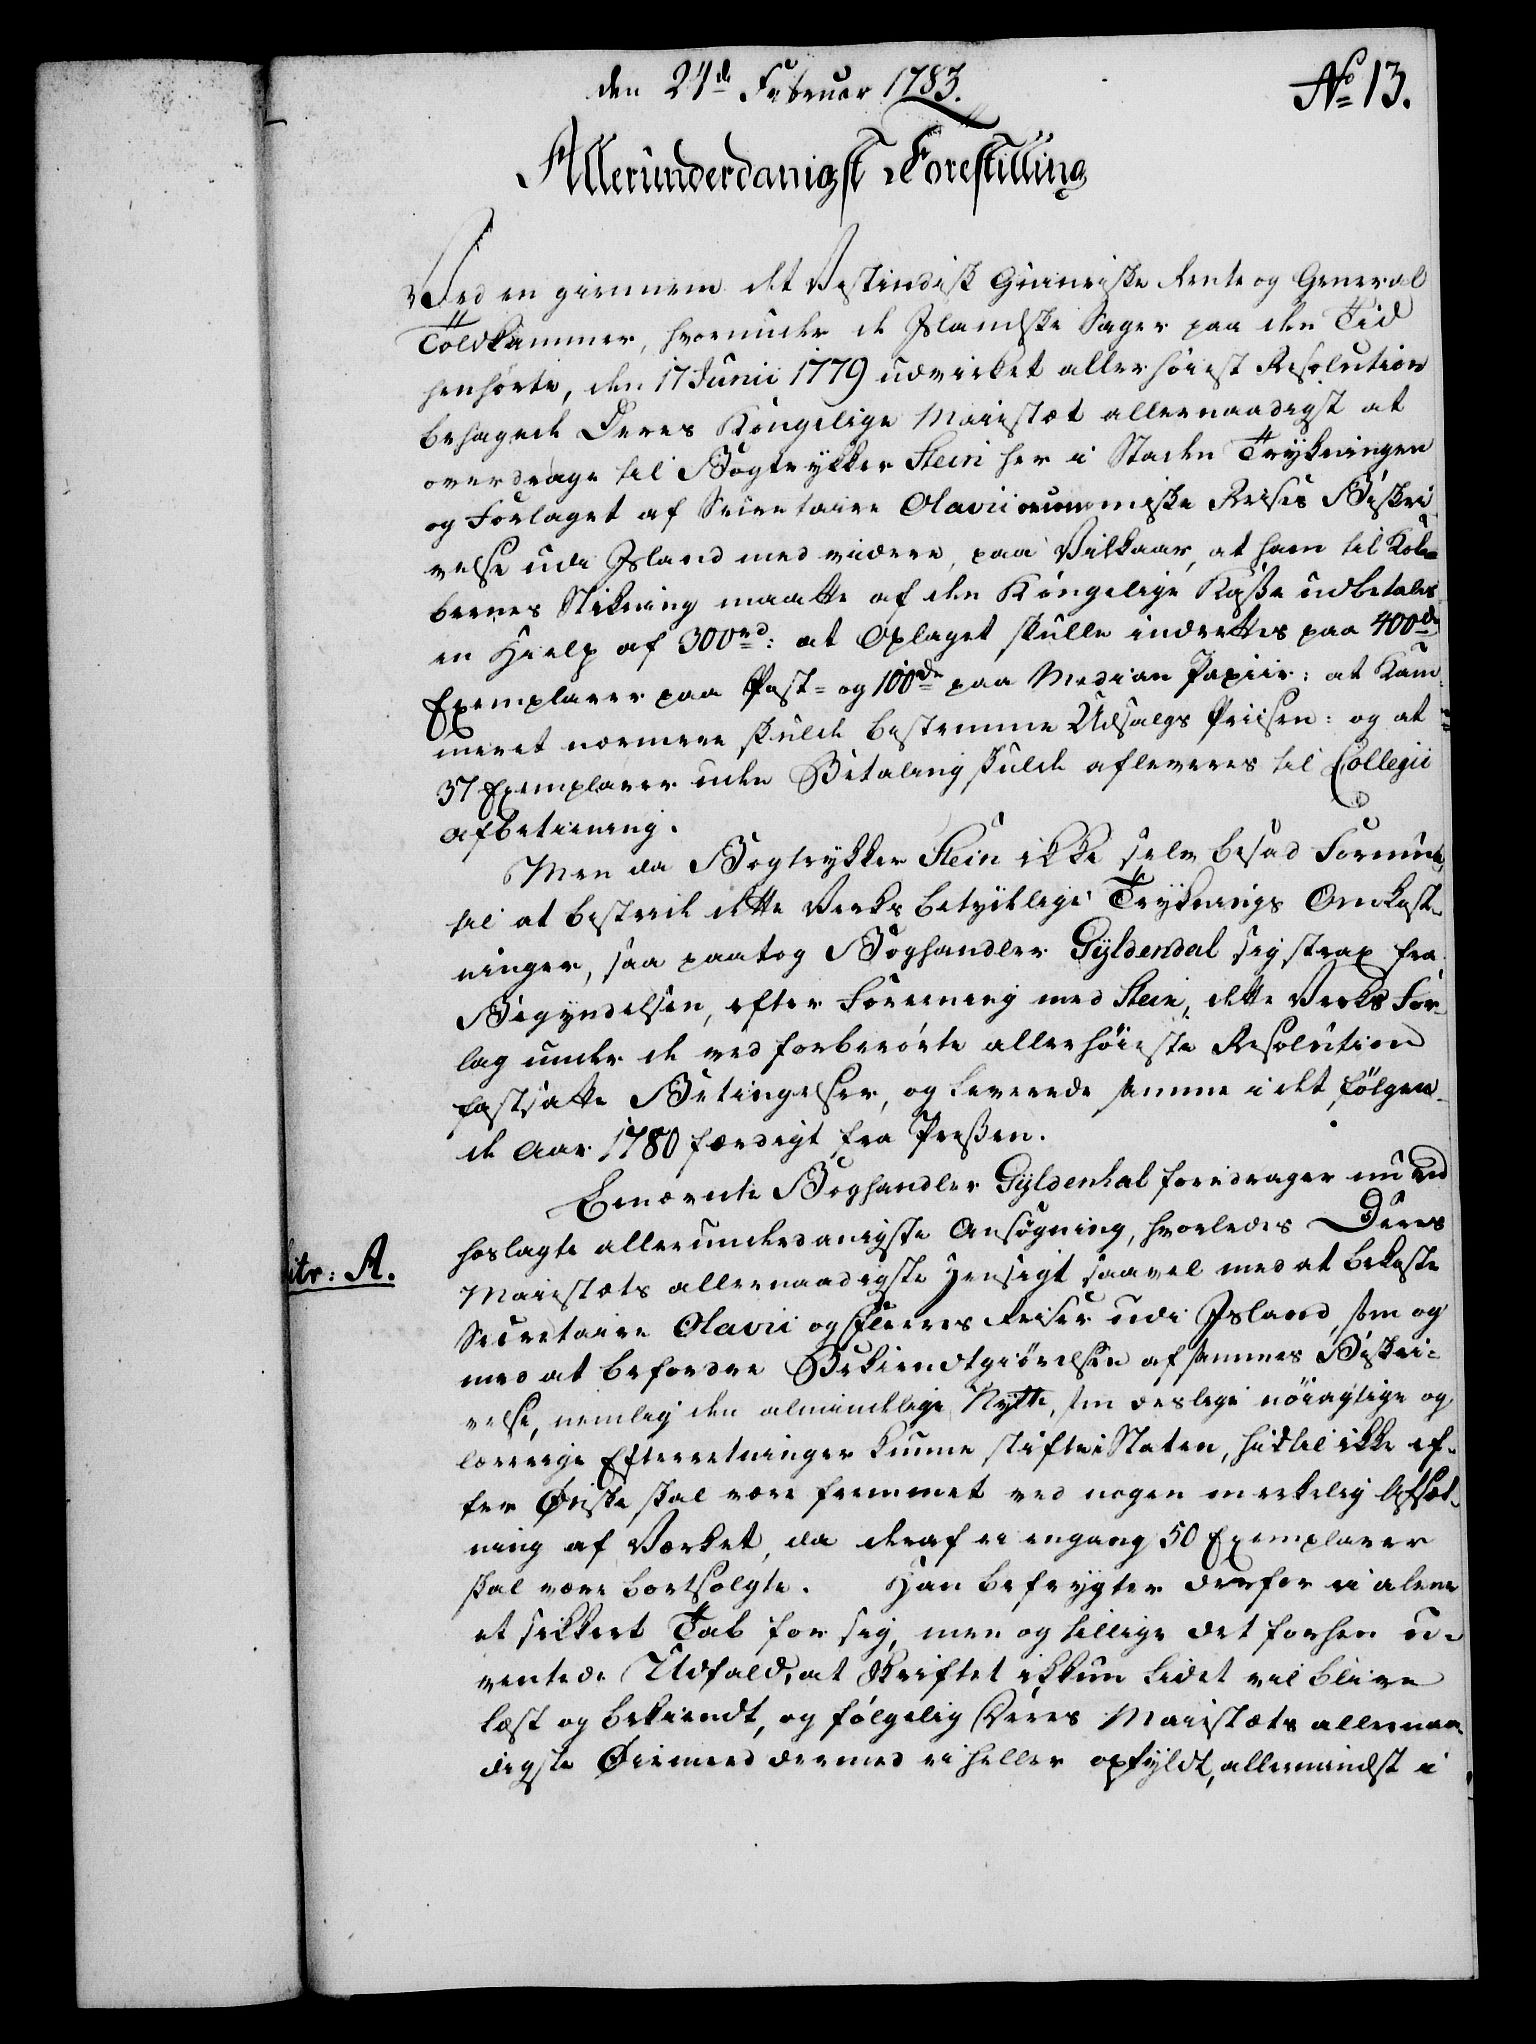 den 24de Februar 1783.
No 13.
Allerunderdanigst Forestilling
Ved en giennem det Vestindisk Guineiske Rente og General
Toldkammer, hvorunder de Islandske Sager paa den Tid
henhörte, den 17 Junii 1779 udvirket allerhöiest Resolution
behagede Deres Kongelige Maiestæt allernaadigst at
overdrage til Bogtrykker Stein her i Staden Trykningen
og Forlaget af Secretaire Olavii oeconomiske Reises Beskri
velse udi Island med videre, paa Vilkaar, at ham til Kob
bernes Stikning maatte af den Kongelige Kasse udbetales
en Hielp af 300rd: at Oplaget skulle indrettes paa 400de
Exemplarer paa Post- og 100de paa Median Papiir: at Kam
meret nærmere skulde bestemme Udsalgs Priisen: og at
37 Exemplarer uden Betaling skulde afleveres til Collegii
afbetiening.
Men da Bogtrykker Stein ikke selv besad Formue
til at bestride dette Verks betydelige Tryknings Omkost-
ninger, saa paatog Boghandler Gyldendal sig strax fra
Begyndelsen, efter Foreening med Stein, dette Verks For-
lag under de ved forberörte allerhöieste Resolution
fastsatte Betingelser, og leverede samme i det fölgen-
de Aar 1780 færdigt fra Pressen.
Litr: A.
Bemældte Boghandler Gyldendal foredrager nu ved
hoslagte allerunderdanigste Ansögning, hvorledes Deres
Maiestæts allernaadigste Hensigt saavel med at bekoste
Secretaire Olavii og fleeres Reiser udi Island, som og
med at befordre Bekiendtgiörelsen af sammes Beskri-
velse, nemlig den almindelige Nytte, som deslige nöiagtige og
lærerige Efterretninger kunne stifte i Staten, hidtil ikke ef-
ter Önske skal være fremmet ved nogen merkelig Afsæt-
ning af Verket, da deraf ei engang 50 Exemplarer
skal være bortsolgte. Han befrygter derfor ei alene
et sikkert Tab for sig, men og tillige det forhen u-
ventede Udfald, at Skriftet ikkun lidet vil blive
læst og bekiendt, og fölgelig Deres Maiestæts allernaa-
digste Öiemeed dermed ei heller opfyldt, allermindst i